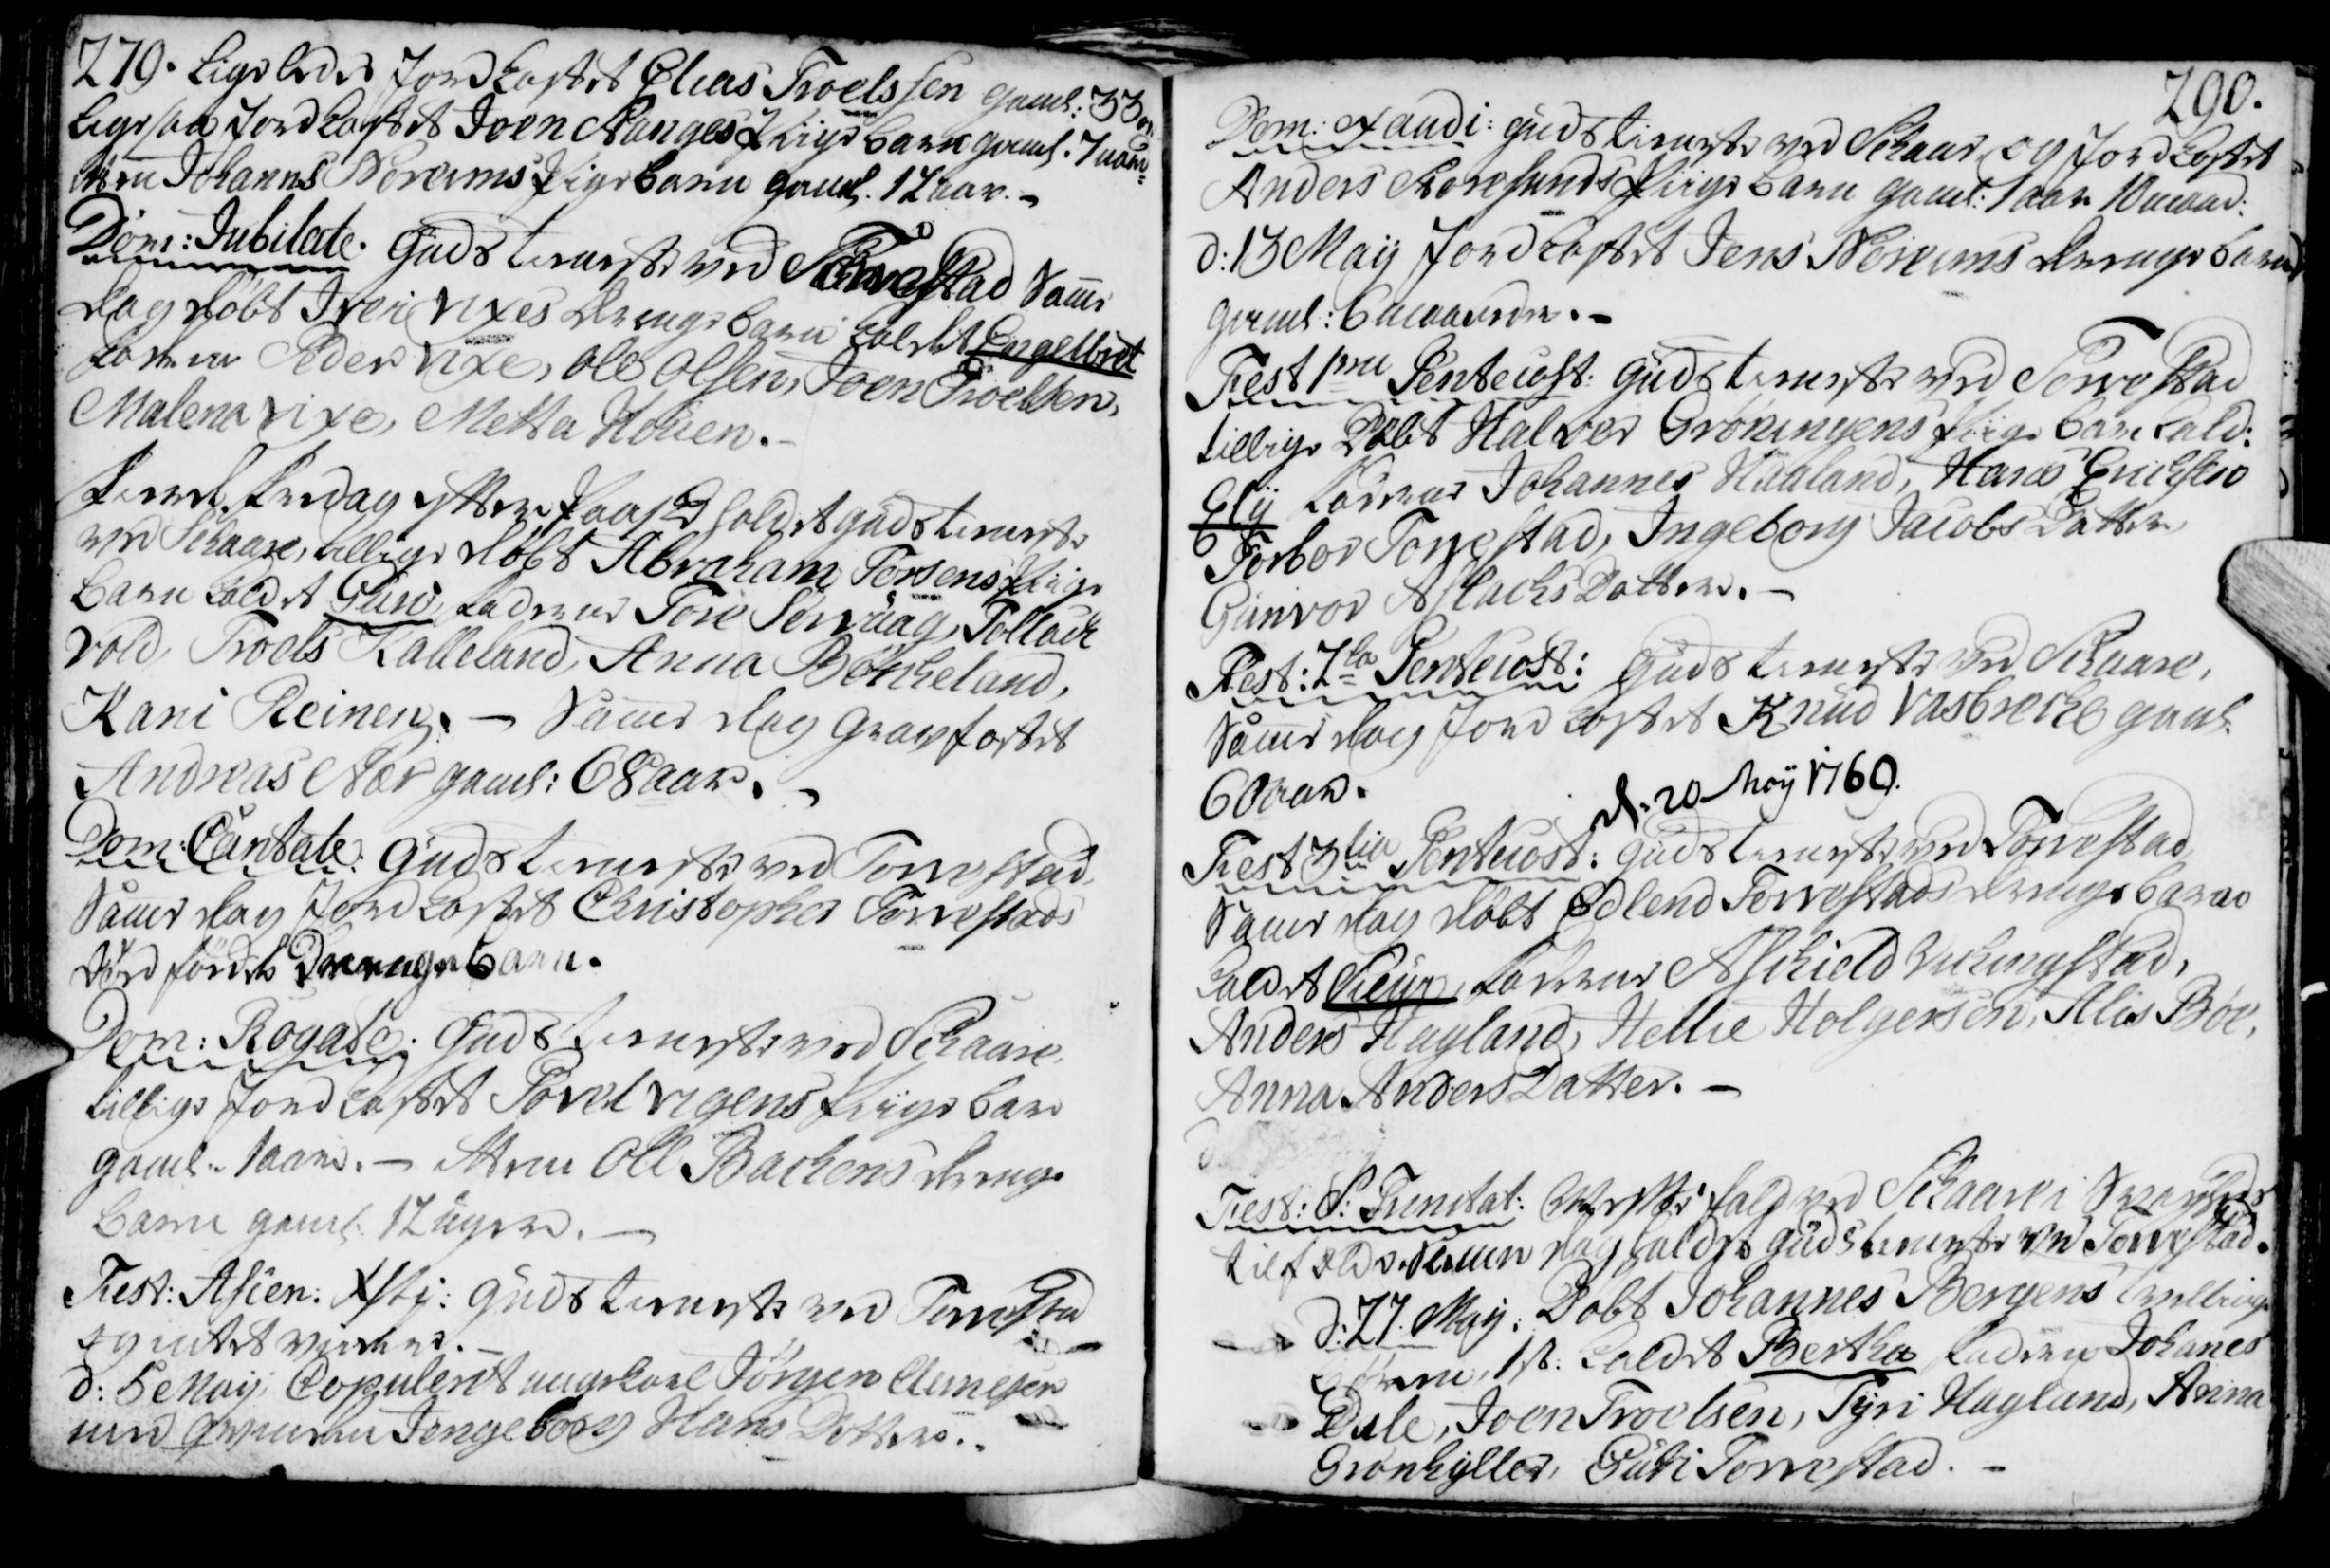 279. Ligeledes Jordkastet Elias Troelssen gaml: 33
Ligesaa Jordkastet Joen Nanges Piigebarn gaml. 7
item Johanns Noreims Pigebarn gaml. 12 aar. –
Dom: Jubilate. Gudstieneste ved Torvestad Samme
dag døbt Iver vixes drengebarn kaldet Engelbret
Faddere Peder vixe, Ole Olsen, Joen Troelsen,
Malena vixe, Metta Houen. –
fredag efter Paaske holdet gudstieneste
ved Schaare, tillige døbt Abraham Torsens Piige
barn kaldet Guro, Faddere Tore Sørvaag, Tollach
vold, Troels Kalleland, Anna Børkeland,
Kani Reinen. – Samme dag Gravfæstet
Andreas Nær gaml: 68 aar. –
Dom: Cantate: Gudstieneste ved Torvestad.
Samme dag Jordkastet Christopher Torvestads
død fødde Drengebarn.
Dom: Rogate. Gudstieneste ved Schaare.
tillige Jordkastet Povel vigens Piigebarn
gaml. 1 aar. – item Oll Bachens drenge
barn gaml. 12 uger. –
Fest: Ascen: Xsti: gudstieneste ved Torvestad
og intet videre. –
d: 5 Maij Copuleret ungekarl Jørgen Clemetsen
med qvinden Ingeborg Hans Datter. .
290.
Dom: Exaudi: gudstieneste ved Schaare, og Jordkastet
Anders Storesunds Piigebarn gaml: 1 aar 10 maan:
d: 13 Maij Jordkastet Jens Noreims drengebarn
gaml: 6 maaneder. –
Fest 1me Pentecost: gudstieneste ved Torvestad
tillige Døbt Halvor Grøningens Piigebarn kald:
Elij Faddere Johannes Haaland, Hans Erichsen
Torbor Torvestad, Ingeborg Jacobs Datter,
Gunvor Aslachs Datter. –
Fest: 2da Pentecost: Gudstieneste ved Schaare,
Samme dag Jordkastet Knud Vasbrecke gaml:
60 aar.
d. 20 Maij 1760.
Fest 3tia Pentecost: gudstieneste ved Torvestad
Samme dag døbt Edlend Torvestads drengebarn
kaldet Siur, Faddere Aschield Vichingstad,
Anders Hagland, Hellie Holgersen, Alis Bøe,
Anna Anders Datter. –
Fest: S: Trinitat: Messefald ved Schaare i
tilfelde. Samme dag holdet gudstieneste ved Torvestad.
d: 27 Maij: Døbt Johannes Bergens tvillinge
børn, 1st: kaldet Bertha Faddere Johanes
Dale, Joen Troelsen, Tyri Hagland, Anna
Grønhyller, Guri Torvestad. –